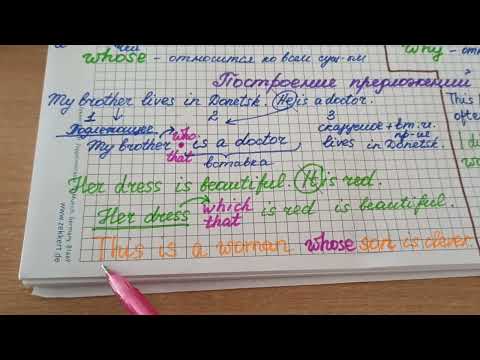 whose - относится ко всем сущ-м
why - отн
Построение предложений
My brother lives in Donetsk. He is a doctor.
1 2 3
Подлежащее who сказуемое + вт. ч. пр-ие
My brother is a doctor, lives in Donetsk.
that вставка
This
often
Her dress is beautiful. It is red.
Her dress which is red is beautiful.
that
This is a woman whose son is clever.
www.zekkert.de